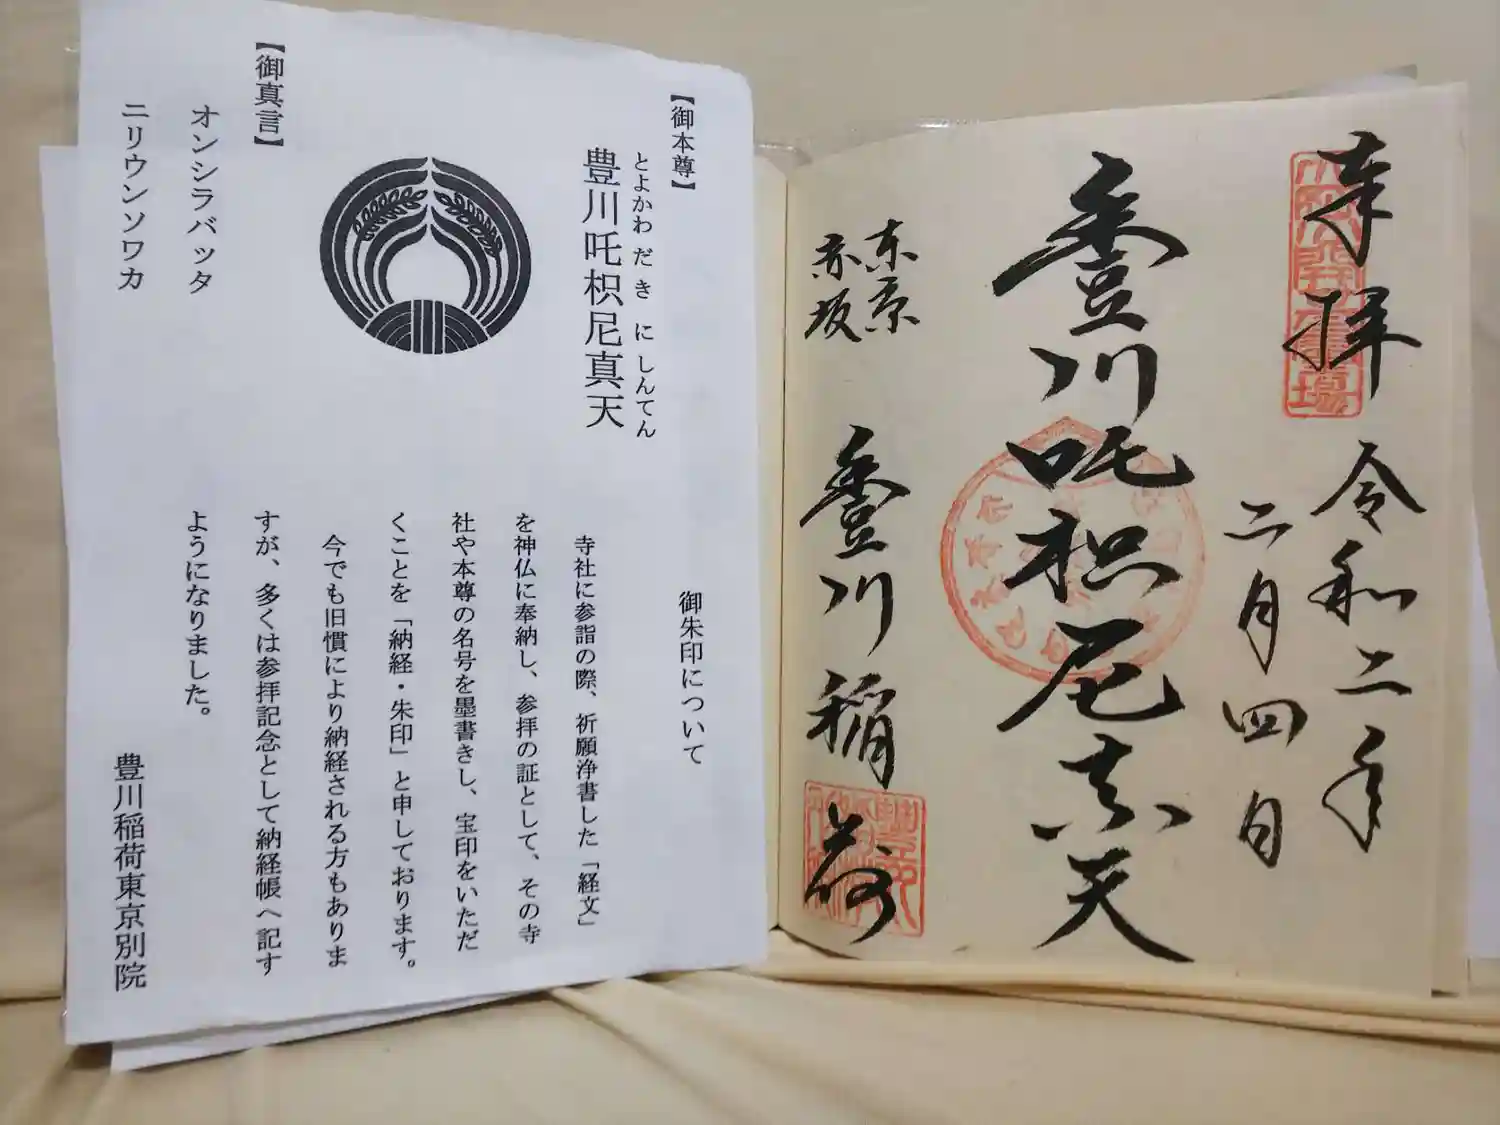 奉拝
令和二年
二月四日
豊川吒枳尼真天
東京
赤坂
豊川稲荷
【御本尊】
とよかわだきにしんてん
豊川吒枳尼真天
【御真言】
オンシラバッタ
ニリウンソワカ
御朱印について
寺社に参詣の際、祈願浄書した「経文」
を神仏に奉納し、参拝の証として、その寺
社や本尊の名号を墨書きし、宝印をいただ
くことを「納経・朱印」と申しております。
今でも旧慣により納経される方もありま
すが、多くは参拝記念として納経帳へ記す
ようになりました。
豊川稲荷東京別院